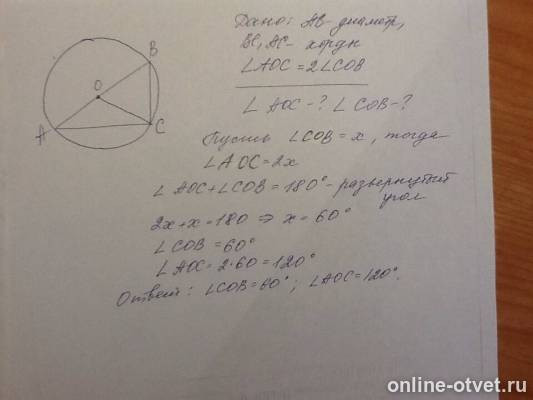 Дано: AB - диаметр,
BC, AC - хорды
∠AOC = 2∠COB
∠AOC - ? ∠COB - ?
Пусть ∠COB = x, тогда
∠AOC = 2x
∠AOC + ∠COB = 180° - развернутый
угол
2x + x = 180 ⇒ x = 60°
∠COB = 60°
∠AOC = 2·60 = 120°
Ответ: ∠COB = 60°; ∠AOC = 120°.
B
O
A
C
online-otvet.ru